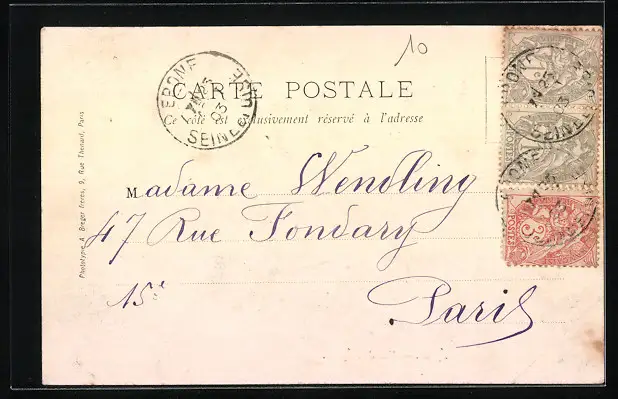 10
CARTE POSTALE
Ce côté est exclusivement réservé à l'adresse
Madame Wendling
47 Rue Fondary
15e
Paris
Phototypie A. Breger frères, 9, Rue Thénard, Paris
SEINE
03
POSTES